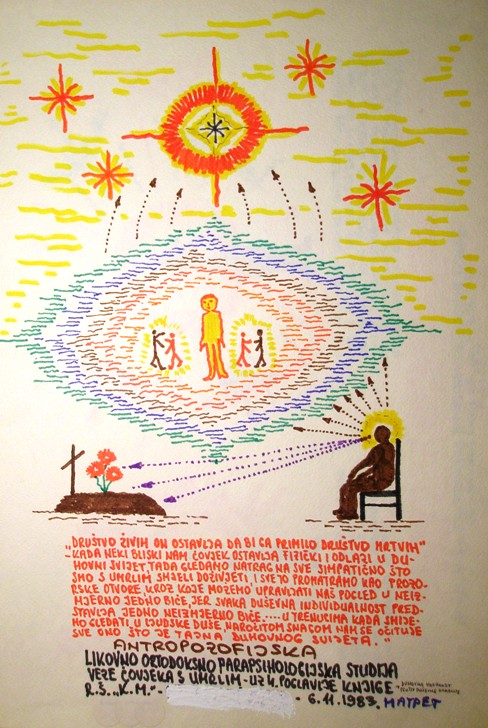 "DRUŠTVO ŽIVIH ON OSTAVLJA DA BI GA PRIMILO DRUŠTVO MRTVIH"
"KADA NEKI BLISKI NAM ČOVJEK OSTAVLJA FIZIČKI I ODLAZI U DU-
HOVNI SVIJET, TADA GLEDAMO NATRAG NA SVE SIMPATIČNO ŠTO
SMO S UMRLIM SMJELI DOŽIVJETI, I SVE TO PROMATRAMO KAO PROZO-
RSKE OTVORE, KROZ KOJE MOŽEMO UPRAVLJATI NAŠ POGLED U NEIZ-
MJERNO JEDNO BIĆE, JER SVAKA DUŠEVNA INDIVIDUALNOST PRED-
STAVLJA JEDNO NEIZMJERNO BIĆE.....U TRENUCIMA KADA SMIJE-
MO GLEDATI U LJUDSKE DUŠE, NAROČITOM SNAGOM NAM SE OČITUJE
SVE ONO ŠTO JE TAJNA DUHOVNOG SVIJETA."
ANTROPOZOFIJSKA
LIKOVNO ORTODOKSNO PARAPSIHOLOGIJSKA STUDIJA
VEZE ČOVJEKA S UMRLIM - UZ 4. POGLAVLJE KNJIGE -
R.Š. "K.M." - - 6.11.1983, MATPET